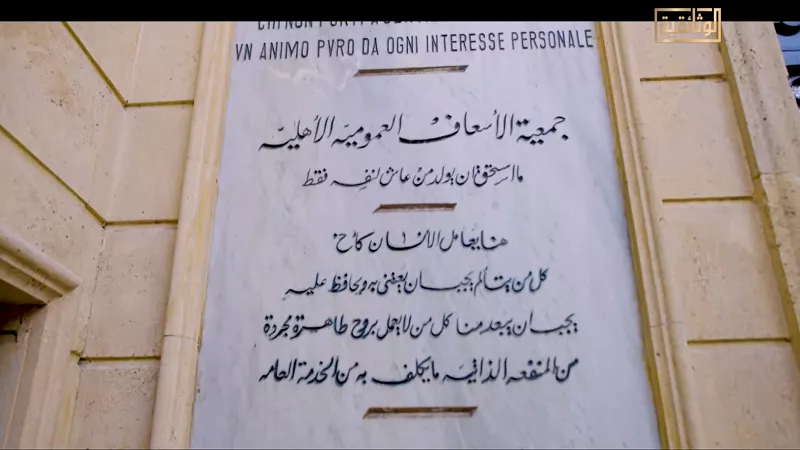 الوثائقية
VN ANIMO PVRO DA OGNI INTERESSE PERSONALE
جمعية الأسعاف العموميه الأهليه
ما استحق ان يولد من عاش لنفسه فقط
هنا يعامل الانسان كأخ
كل من يتألم يجب ان يعتنى به ويحافظ عليه
يجب ان يبعد منا كل من لا يعمل بروح طاهرة مجردة
من المنفعه الذاتيه ما يكلف به من الخدمة العامه